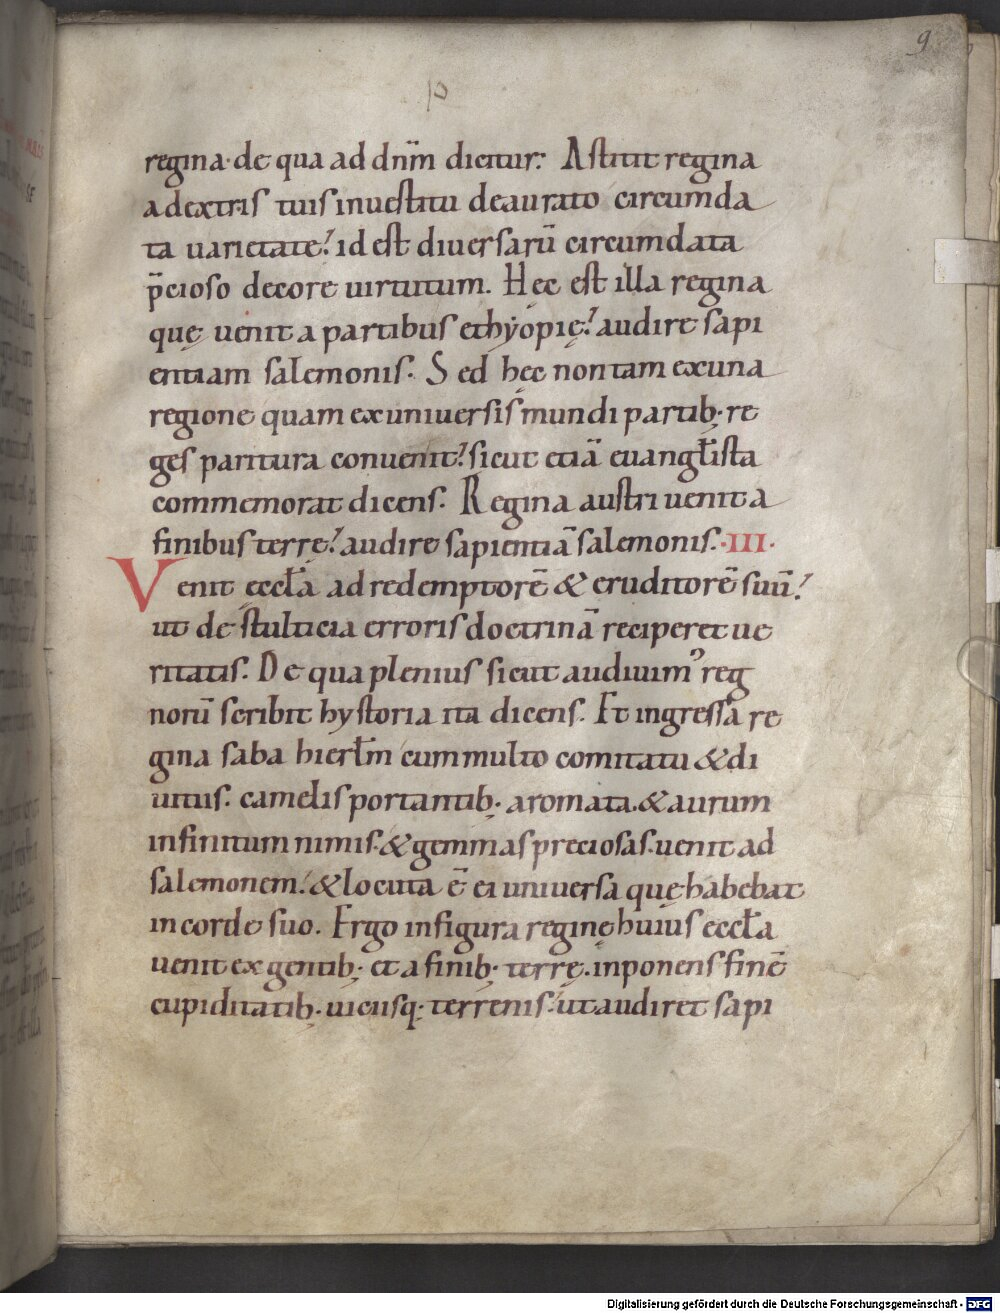 9
p
regina· de qua ad dnm̄ dicitur: Astitit regina
a dextris tuis in uestitu deaurato circumda
ta uarietate? id est diuersarū circumdata
p̄cioso decore uirtutum. Hec est illa regina
quę uenit a partibus ethyopię? audire sapi
entiam salemonis. Sed hec non tam ex una
regione quam ex uniuersis mundi partib; re
ges paritura conuenit? sicut etiā euangl̄ista
commemorat dicens. Regina austri uenit a
finibus terrę? audire sapientiā salemonis. ·III·
Venit eccl̄a ad redemptorē & eruditorē suū?
ut de stulticia erroris doctrinā reciperet ue
ritatis. De qua plenius sicut audiuim᾽ reg
norū scribit hystoria ita dicens. Et ingressa re
gina saba hierl̄m cum multo comitatu & di
uitiis. camelis portantib; aromata. & aurum
infinitum nimis. & gemmas preciosas. uenit ad
salemonem. & locuta ē ei uniuersa quę habebat
in corde suo. Ergo in figura reginę huius eccl̄a
uenit ex gentib; et a finib; terrę. inponens finē
cupiditatib; uiciisq; terrenis. ut audiret sapi
Digitalisierung gefördert durch die Deutsche Forschungsgemeinschaft - DFG